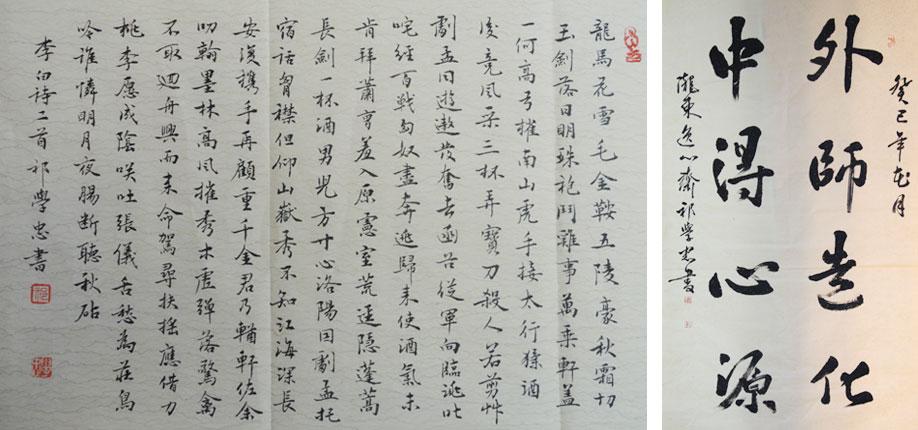 龍馬花雪毛金鞍五陵豪秋霜切
玉劍落日明珠袍鬥雞事萬乘軒蓋
一何高弓摧南山虎手接太行猱酒
後竞風采三杯弄寶刀殺人若剪艸
劇孟同遊遨發奮去函谷從軍向臨洮叱
咤經百戰匈奴盡奔逃歸來使酒氣未
肯拜蕭曹羞入原憲室荒迳隱蓬蒿
長劍一杯酒男兒方寸心洛陽因劇孟托
宿話胷襟但仰山嶽秀不知江海深長
安復攜手再顧重千金君乃輶軒佐余
叨翰墨林高風摧秀木虛彈落驚禽
不取迴舟興而來命駕尋扶搖應借力
桃李愿成陰咲吐張儀舌愁為莊舄
吟誰憐明月夜腸斷聽秋砧
李白詩二首 祁學忠書
癸巳年花月
外師造化
中得心源
隴東逸心齋祁學忠書